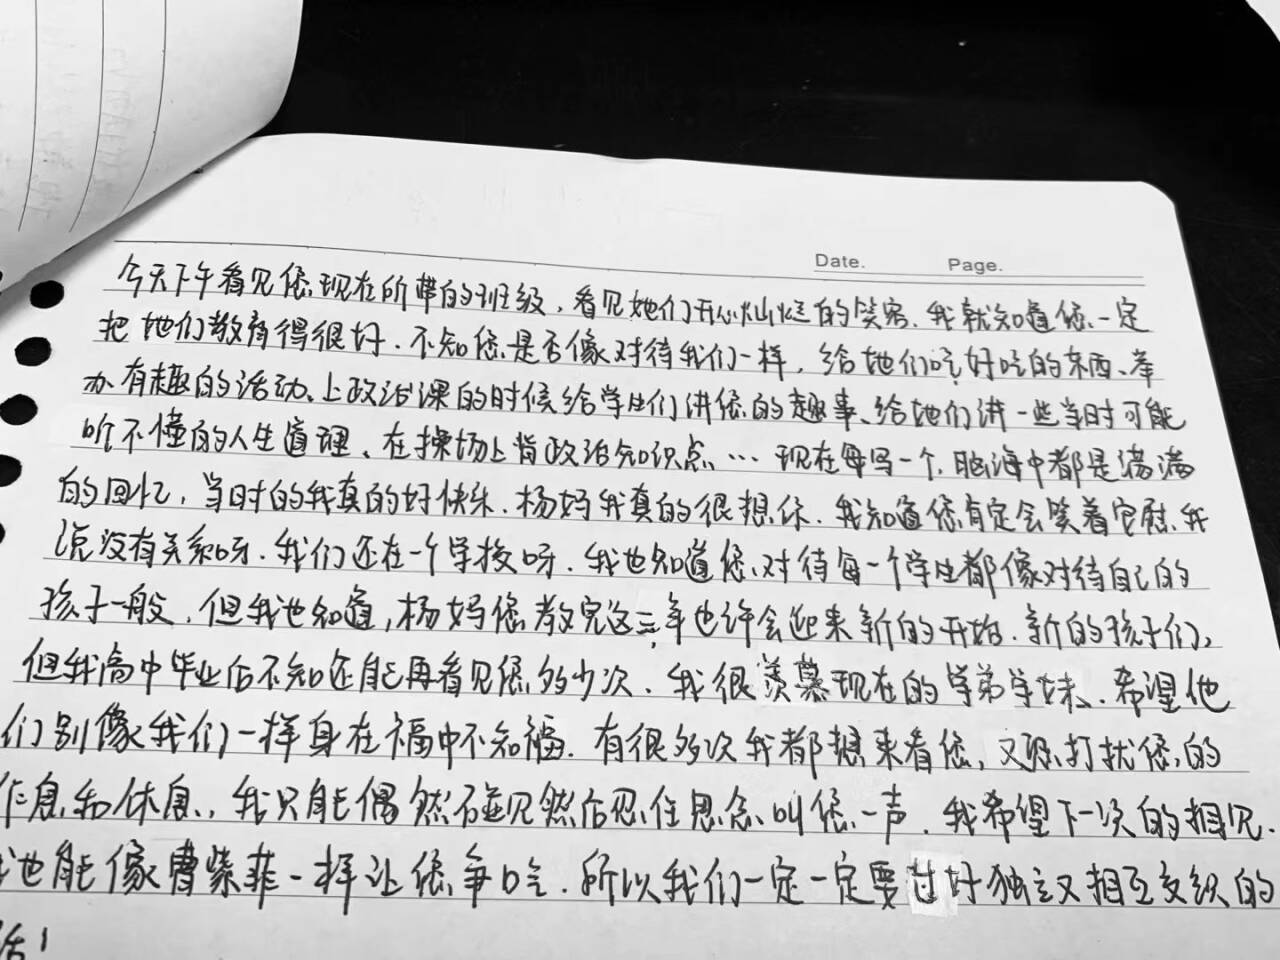 Date. Page.
今天下午看见您现在所带的班级，看见她们开心灿烂的笑容，我就知道您一定
把她们教育得很好。不知您是否像对待我们一样，给她们吃好吃的东西、举
办有趣的活动、上政治课的时候给学生们讲您的趣事、给她们讲一些当时可能
听不懂的人生道理、在操场上背政治知识点…现在每写一个，脑海中都是满满
的回忆，当时的我真的好快乐。杨妈我真的很想你。我知道您肯定会笑着安慰我
说没有关系呀，我们还在一个学校呀。我也知道您对待每一个学生都像对待自己的
孩子一般，但我也知道，杨妈您教完这三年也许会迎来新的开始，新的孩子们，
但我高中毕业后不知还能再看见您多少次。我很羡慕现在的学弟学妹、希望他
们别像我们一样身在福中不知福。有很多次我都想来看您，又恐打扰您的
作息和休息，我只能偶然碰见然后忍住思念叫您一声。我希望下一次的相见，
我也能像曹紫菲一样让您争吃。所以我们一定一定要过好独立又相互交织的
活！